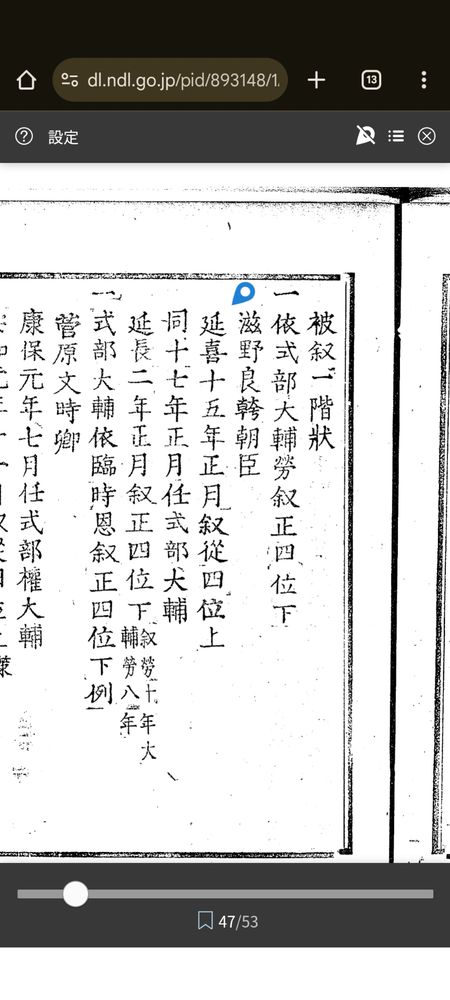 13
dl.ndl.go.jp/pid/893148/1
設定
被叙一階狀
一依式部大輔勞叙正四位下
滋野良幹朝臣
延喜十五年正月叙從四位上
同十七年正月任式部大輔
延長二年正月叙正四位下叙勞十年大輔勞八年
一式部大輔依臨時恩叙正四位下例
菅原文時卿
康保元年七月任式部權大輔
47/53